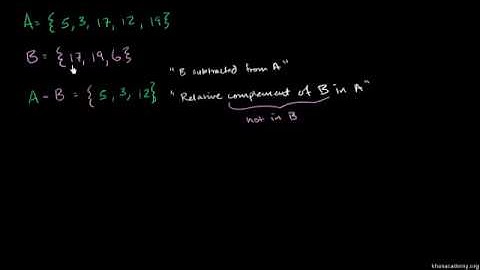 A = {5, 3, 17, 12, 19}
B = {17, 19, 6}
"B subtracted from A"
A - B = {5, 3, 12} "Relative complement of B in A"
not in B
khanacademy.org